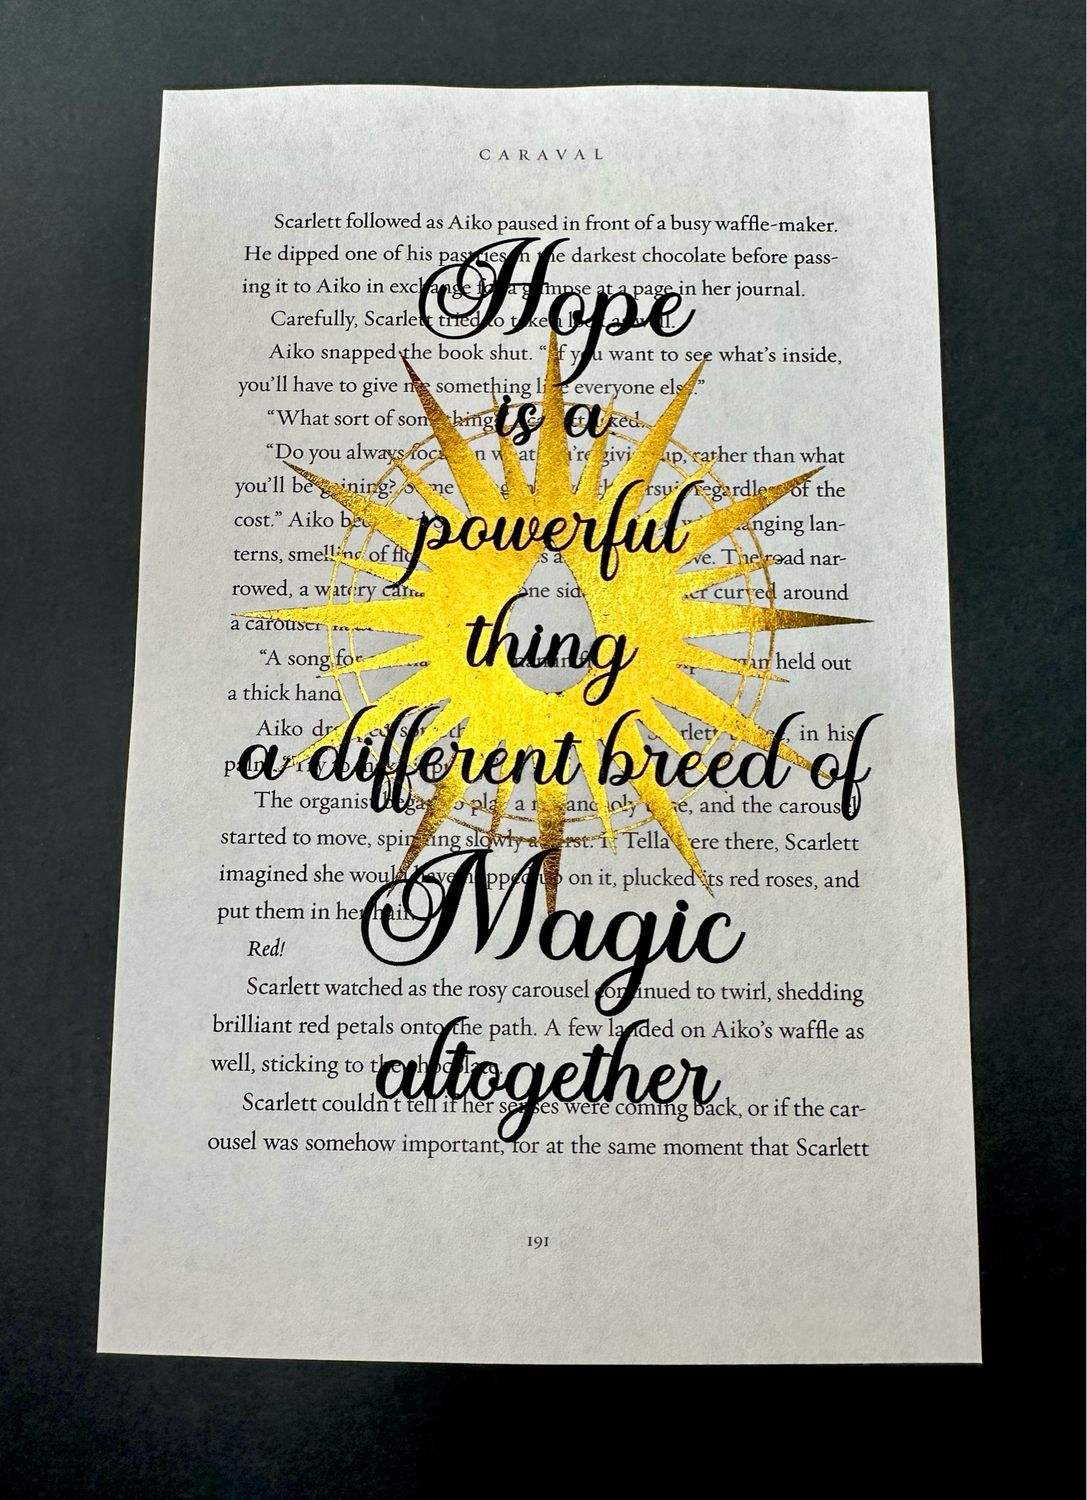 CARAVAL
Scarlett followed as Aiko paused in front of a busy waffle-maker.
He dipped one of his pastries in the darkest chocolate before pass-
ing it to Aiko in exchange for a glimpse at a page in her journal.
Carefully, Scarlett tried to take a look as well.
Aiko snapped the book shut. “If you want to see what’s inside,
you’ll have to give me something like everyone else.”
“What sort of something?” Scarlett asked.
“Do you always focus on what you’re giving up, rather than what
you’ll be gaining? Some regardless of the
cost.” Aiko hanging lan-
terns, smelling of The road nar-
rowed, a watery one side curved around
a carousel
“A song for held out
a thick hand
Aiko dropped in his
palm. “Try to
The organist began to play a melancholy tune, and the carousel
started to move, spinning slowly at first. If Tella were there, Scarlett
imagined she would have hopped up on it, plucked its red roses, and
put them in her hair.
Red!
Scarlett watched as the rosy carousel continued to twirl, shedding
brilliant red petals onto the path. A few landed on Aiko’s waffle as
well, sticking to the chocolate.
Scarlett couldn’t tell if her senses were coming back, or if the car-
ousel was somehow important, for at the same moment that Scarlett
191
Hope
is a
powerful
thing
a different breed of
Magic
altogether